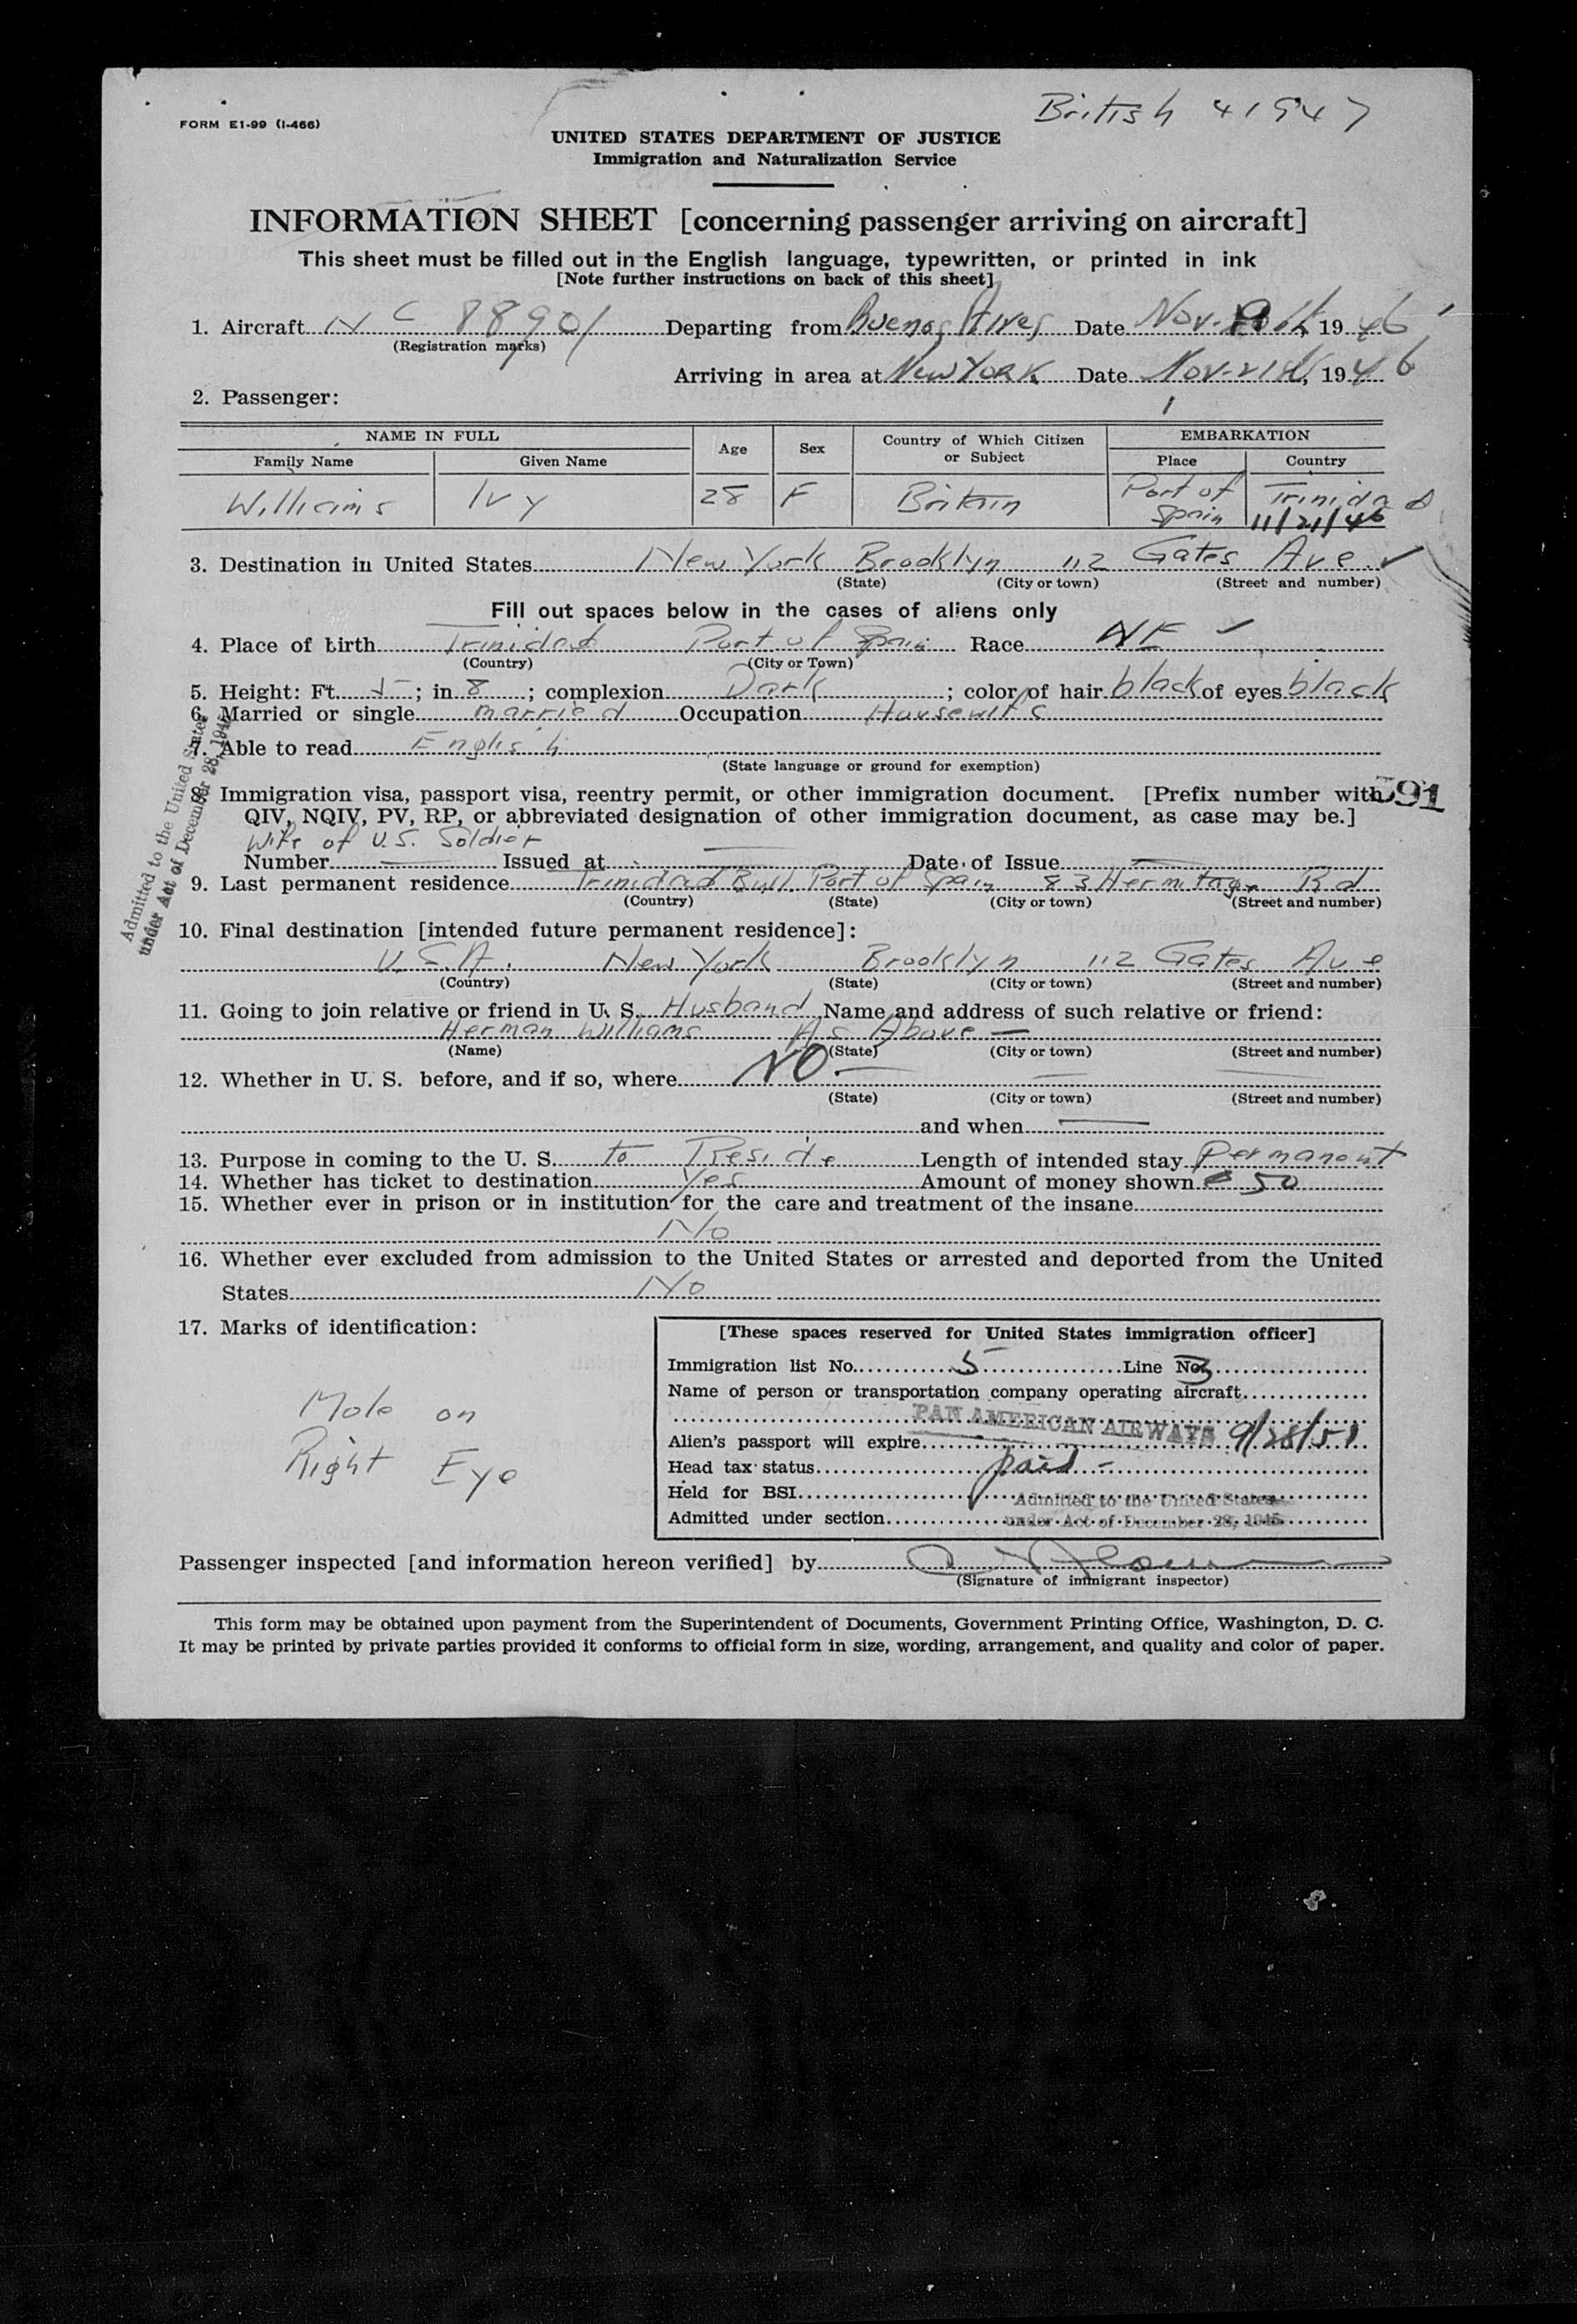 British 41947
FORM E1-99 (I-466)
UNITED STATES DEPARTMENT OF JUSTICE
Immigration and Naturalization Service
INFORMATION SHEET [concerning passenger arriving on aircraft]
This sheet must be filled out in the English language, typewritten, or printed in ink
[Note further instructions on back of this sheet]
1. Aircraft NC 88901 Departing from Buenos Aires Date Nov. 19 46
(Registration marks)
Arriving in area at New York Date Nov. 21st, 19 46
2. Passenger:
NAME IN FULL Age Sex Country of Which Citizen or Subject EMBARKATION
Family Name Given Name Place Country
Williams Ivy 28 F Britain Port of Spain Trinidad
11/21/46
3. Destination in United States New York Brooklyn 112 Gates Ave.
(State) (City or town) (Street and number)
Fill out spaces below in the cases of aliens only
4. Place of birth Trinidad Port of Spain Race NE
(Country) (City or Town)
5. Height: Ft. 5; in 8; complexion Dark; color of hair black of eyes black
6. Married or single married Occupation Housewife
7. Able to read English
(State language or ground for exemption)
8. Immigration visa, passport visa, reentry permit, or other immigration document. [Prefix number with 591
QIV, NQIV, PV, RP, or abbreviated designation of other immigration document, as case may be.]
Wife of U.S. Soldier
Number Issued at Date of Issue
9. Last permanent residence Trinidad B.W.I. Port of Spain 83 Hermitage Rd
(Country) (State) (City or town) (Street and number)
Admitted to the United States
under Act of December 28, 1945
10. Final destination [intended future permanent residence]:
U.S.A. New York Brooklyn 112 Gates Ave
(Country) (State) (City or town) (Street and number)
11. Going to join relative or friend in U. S. Husband Name and address of such relative or friend:
Herman Williams As Above
(Name) (State) (City or town) (Street and number)
12. Whether in U. S. before, and if so, where NO.
(State) (City or town) (Street and number)
and when
13. Purpose in coming to the U. S. to Reside Length of intended stay Permanent
14. Whether has ticket to destination Yes Amount of money shown 50
15. Whether ever in prison or in institution for the care and treatment of the insane
No
16. Whether ever excluded from admission to the United States or arrested and deported from the United
States No
17. Marks of identification:
Mole on
Right Eye
[These spaces reserved for United States immigration officer]
Immigration list No. 5 Line No. 3
Name of person or transportation company operating aircraft
PAN AMERICAN AIRWAYS
Alien's passport will expire 9/28/51
Head tax status paid -
Held for BSI
Admitted to the United States
Admitted under section under Act of December 28, 1945
Passenger inspected [and information hereon verified] by
(Signature of immigrant inspector)
This form may be obtained upon payment from the Superintendent of Documents, Government Printing Office, Washington, D. C.
It may be printed by private parties provided it conforms to official form in size, wording, arrangement, and quality and color of paper.